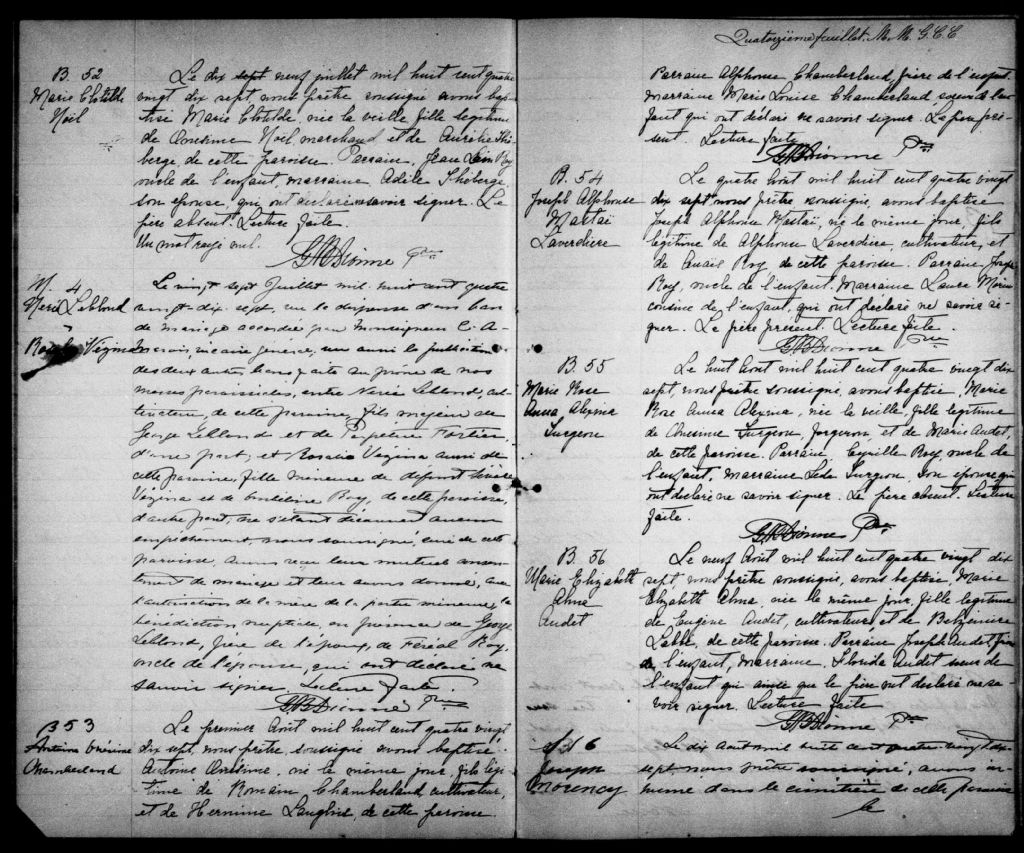 B. 52
Marie Clotilde
Noël
Le dix sept neuf juillet mil huit cent quatre
vingt dix sept, nous prêtre soussigné avons bap-
tisé Marie Clotilde, née la veille, fille légitime
de Onésime Noël, marchand et de Aurélie Thi-
berge, de cette paroisse. Parrain, Jean Roy
oncle de l'enfant, marraine Adèle Thiberge
son épouse, qui ont déclaré ne savoir signer. Le
père absent. Lecture faite.
Un mot rayé nul.
G. Dionne Ptre
M. 4
Néré Leblond
Vézina
Le vingt sept Juillet mil huit cent quatre
vingt-dix sept, vu la dispense d'un ban
de mariage accordée par Monseigneur C. A.
Marois, vicaire général, vu aussi la publication
des deux autres bans faite au prône de nos
messes paroissiales, entre Néré Leblond,
de cette paroisse, fils majeur de
George Leblond et de Perpétue Fortier,
d'une part; et Rosalie Vézina aussi de
cette paroisse, fille mineure de défunt
Vézina et de Roy, de cette paroisse,
d'autre part, ne s'étant découvert aucun
empêchement, nous soussigné, curé de cette
paroisse, avons reçu leur mutuel consen-
tement de mariage et leur avons donné, avec
l'autorisation de la mère de la partie mineure, la
bénédiction nuptiale, en présence de George
Leblond, père de l'époux, de Féréol Roy,
oncle de l'épouse, qui ont déclaré ne
savoir signer. Lecture faite.
G. Dionne Ptre
B 53
Antoine Onésime
Chamberland
Le premier Août mil huit cent quatre vingt
dix sept, nous prêtre soussigné avons baptisé
Antoine Onésime, né le même jour, fils légi-
time de Romain Chamberland cultivateur,
et de Hermine Langlois, de cette paroisse.
Quatorzième feuillet. M. M. G. C. C.
Parrain Alphonse Chamberland, frère de l'enfant.
Marraine Marie Louise Chamberland, soeur de l'en-
fant qui ont déclaré ne savoir signer. Le père pré-
sent. Lecture faite
G. Dionne Ptre
B. 54
Joseph Alphonse
Mastaï
Laverdière
Le quatre Août mil huit cent quatre vingt
dix sept nous prêtre soussigné, avons baptisé
Joseph Alphonse Mastaï, né le même jour, fils
légitime de Alphonse Laverdière, cultivateur, et
de Roy de cette paroisse. Parrain Joseph
Roy, oncle de l'enfant. Marraine Laure Morin
cousine de l'enfant, qui ont déclaré ne savoir si-
gner. Le père présent. Lecture faite.
G. Dionne Ptre
B. 55
Marie Rose
Anna Alexina
Turgeon
Le huit Août mil huit cent quatre vingt dix
sept, nous prêtre soussigné, avons baptisé, Marie
Rose Anna Alexina, née la veille, fille légitime
de Onésime Turgeon, forgeron, et de Marie Audet,
de cette paroisse. Parrain, Cyrille Roy oncle de
l'enfant, Marraine Léda Turgeon son épouse qui
ont déclaré ne savoir signer. Le père absent. Lecture
faite.
G. Dionne Ptre
B. 56
Marie Elizabeth
Alma
Audet
Le neuf Août mil huit cent quatre vingt dix
sept, nous prêtre soussigné, avons baptisé, Marie
Elizabeth Alma, née le même jour, fille légitime
de Eugène Audet, cultivateur, et de Belzémire
Labbé, de cette paroisse. Parrain Joseph Audet
de l'enfant, Marraine, Florida Audet soeur de
l'enfant qui ainsi que le père ont déclaré ne sa-
voir signer. Lecture faite
G. Dionne Ptre
S 16
Joseph
Morency
Le dix Août mil huit cent quatre vingt dix
sept nous prêtre soussigné, avons in-
humé dans le cimetière de cette paroisse
le